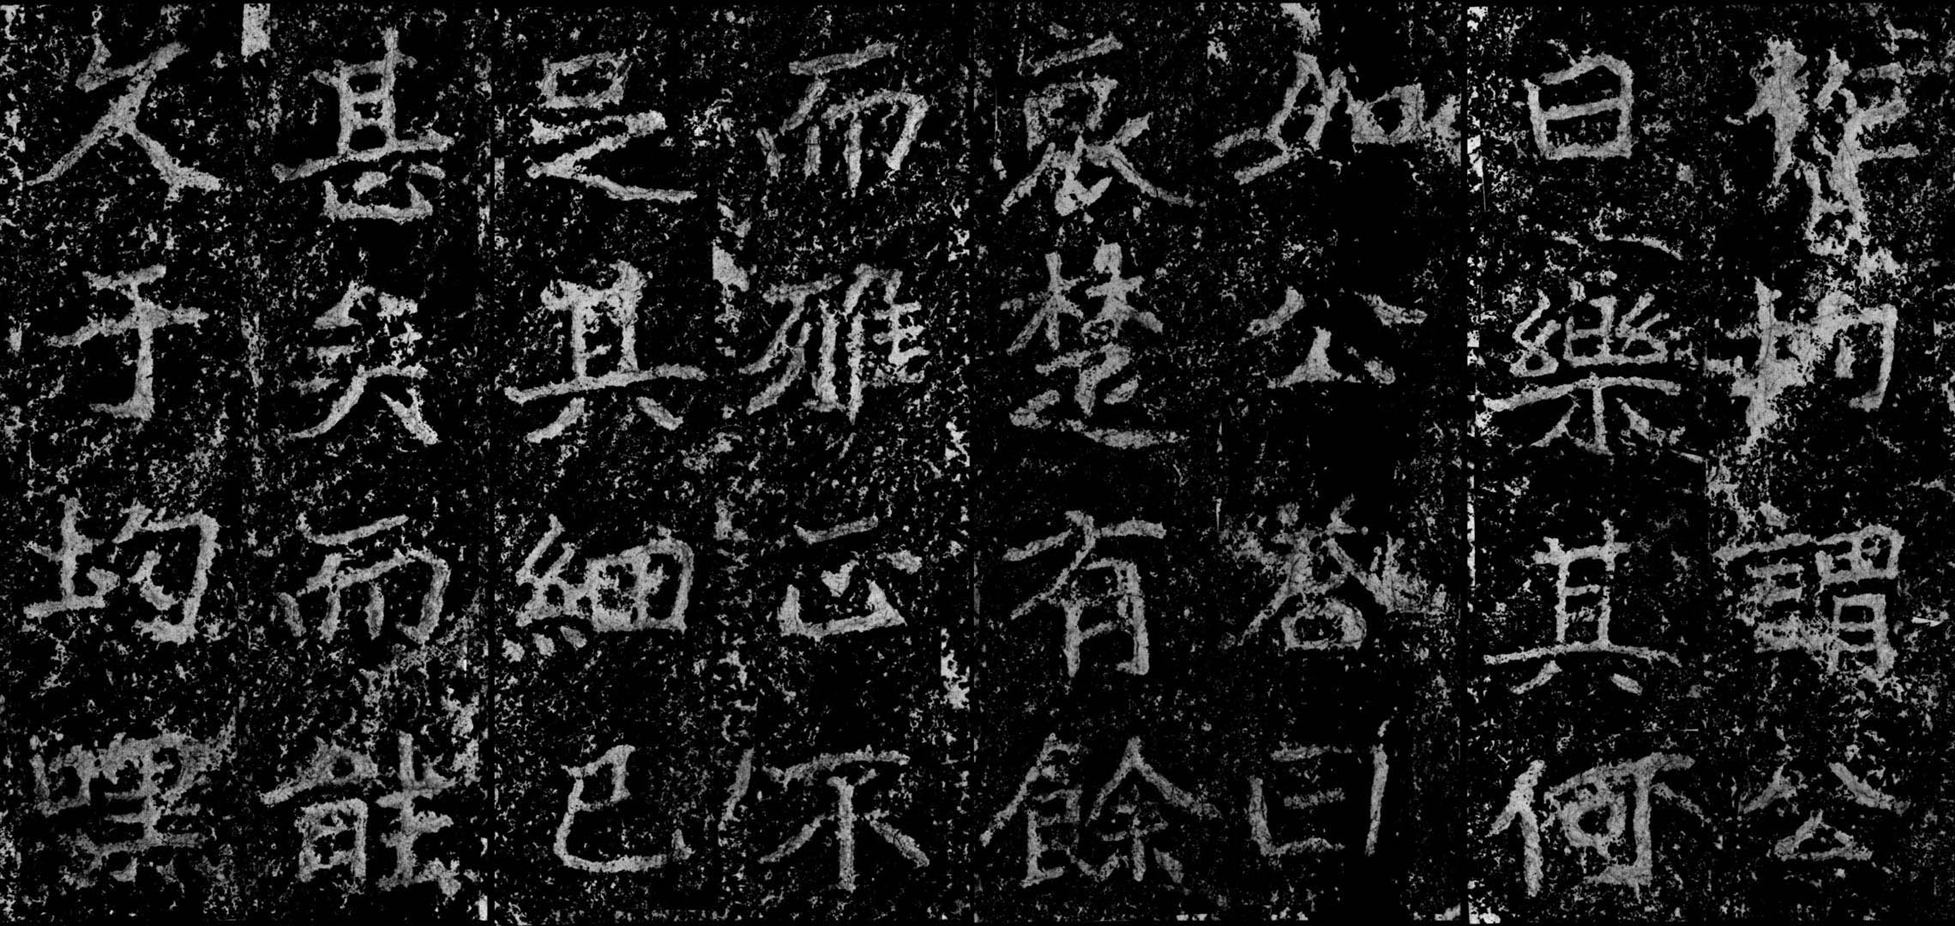 謂公
曰樂其何
如公荅曰
哀楚有餘
而雅正不
足其細已
甚矣而能
久于均嘿